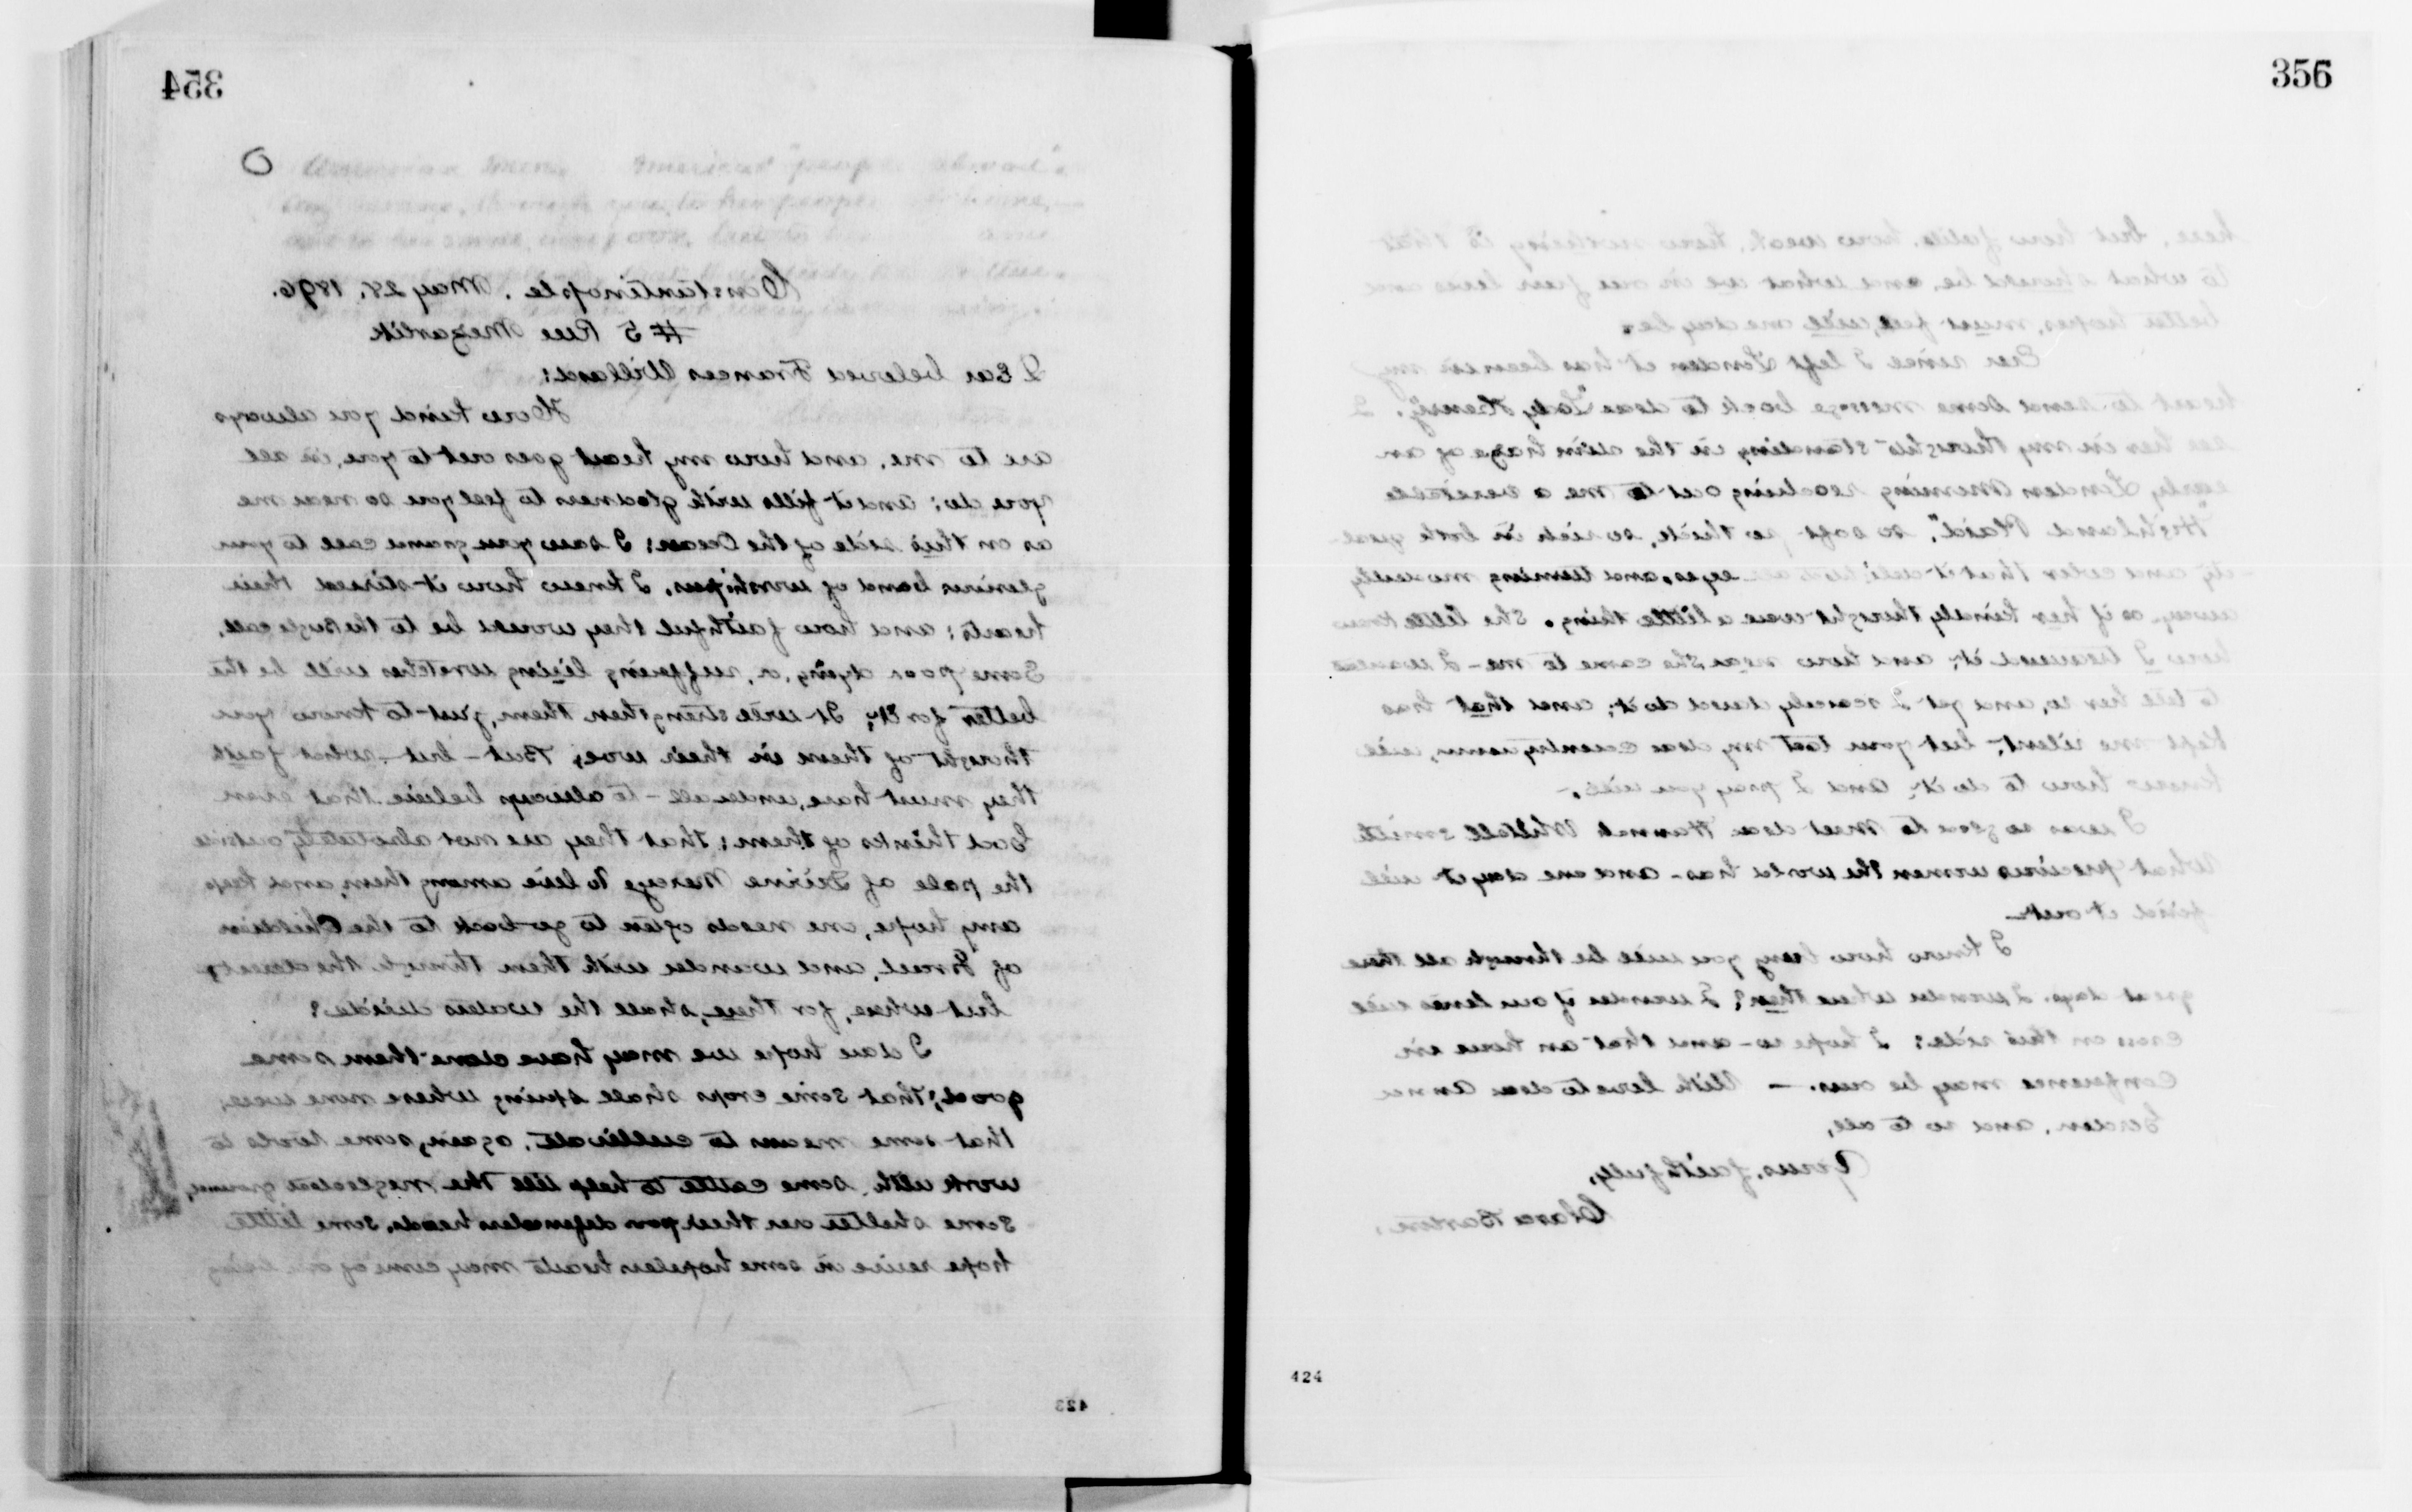 354
Constantinople. May 28, 1896.
#5 Rue Mezarlik
Dear beloved Frances Willard:
How kind you always
are to me, and how my heart goes out to you, in all
you do: and it fills with gladness to feel you so near me
as on this side of the Ocean: I saw your grand call to your
glorious band of worshipers. I knew how it stirred their
hearts: and how faithful they would be to the bugle call,
Some poor dying, or, suffering living wretches will be the
better for it; It will strengthen them, just to know you
thought of them in their woe; But – but – what faith
they must have, under all – to always believe that even
God thinks of them; that they are not absolutely outside
the pale of Divine Mercy. To live among them, and keep
any hope, one needs often to go back to the Children
of Israel, and wander with them through the desert;
but where, for these, shall the waters divide?
I dare hope we may have done them some
good; that some crops shall spring where none were;
that some means to cultivate, again, some tools to
work with, some cattle to help till the neglected ground,
some shelter over their poor defenseless heads, some little
hope revive in some hopeless hearts may come of our being
423
356
here, but how futile, how weak, how nothing is that
to what should be, and what we in our few lives and
better hopes, must feel, will one day be.
Ever since I left London it has been in my
heart to send some message back to dear "Lady Henry". I
see her in my thoughts standing in the dim haze of an
early London morning reaching out to me a veritable
"Highland Plaid", so soft so thick, so rich in both
and color that it eyes, and turning modestly
away, as if her kindly thought were a little thing. She little knew
how I treasured it; and how near she came to me – I wanted
to tell her so, and yet I scarcely dared do it; and that has
kept me silent; but your tact my dear country woman, will
know how to do it; and I pray you will.
I was so glad to meet dear Hannah Whitall Smith
What precious women the world has – and one day it will
find it out –
I know how busy you will be through all these
great days. I wonder where then? I wonder if our lines will
cross on this side: I hope so – and that an hour in
conference may be ours. — With love to dear Anna
Gordon, and so to all,
Yours, faithfully,
Clara Barton.
424